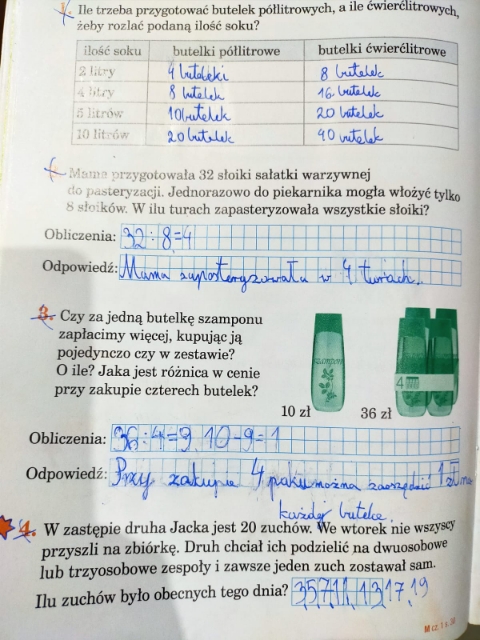 1. Ile trzeba przygotować butelek półlitrowych, a ile ćwierćlitrowych,
żeby rozlać podaną ilość soku?
ilość soku butelki półlitrowe butelki ćwierćlitrowe
2 litry 4 butelki 8 butelek
4 litry 8 butelek 16 butelek
5 litrów 10 butelek 20 butelek
10 litrów 20 butelek 40 butelek
Mama przygotowała 32 słoiki sałatki warzywnej
do pasteryzacji. Jednorazowo do piekarnika mogła włożyć tylko
8 słoików. W ilu turach zapasteryzowała wszystkie słoiki?
Obliczenia: 32:8=4
Odpowiedź: Mama zapasteryzowała w 4 turach.
3. Czy za jedną butelkę szamponu
zapłacimy więcej, kupując ją
pojedynczo czy w zestawie?
O ile? Jaka jest różnica w cenie
przy zakupie czterech butelek?
szampon
4
10 zł 36 zł
Obliczenia: 36:4=9 10-9=1
Odpowiedź: Przy zakupie 4 paku można zaoszczędzić 1 zł na
każdej butelce.
4. W zastępie druha Jacka jest 20 zuchów. We wtorek nie wszyscy
przyszli na zbiórkę. Druh chciał ich podzielić na dwuosobowe
lub trzyosobowe zespoły i zawsze jeden zuch zostawał sam.
Ilu zuchów było obecnych tego dnia? 3,5,7,11,13,17,19